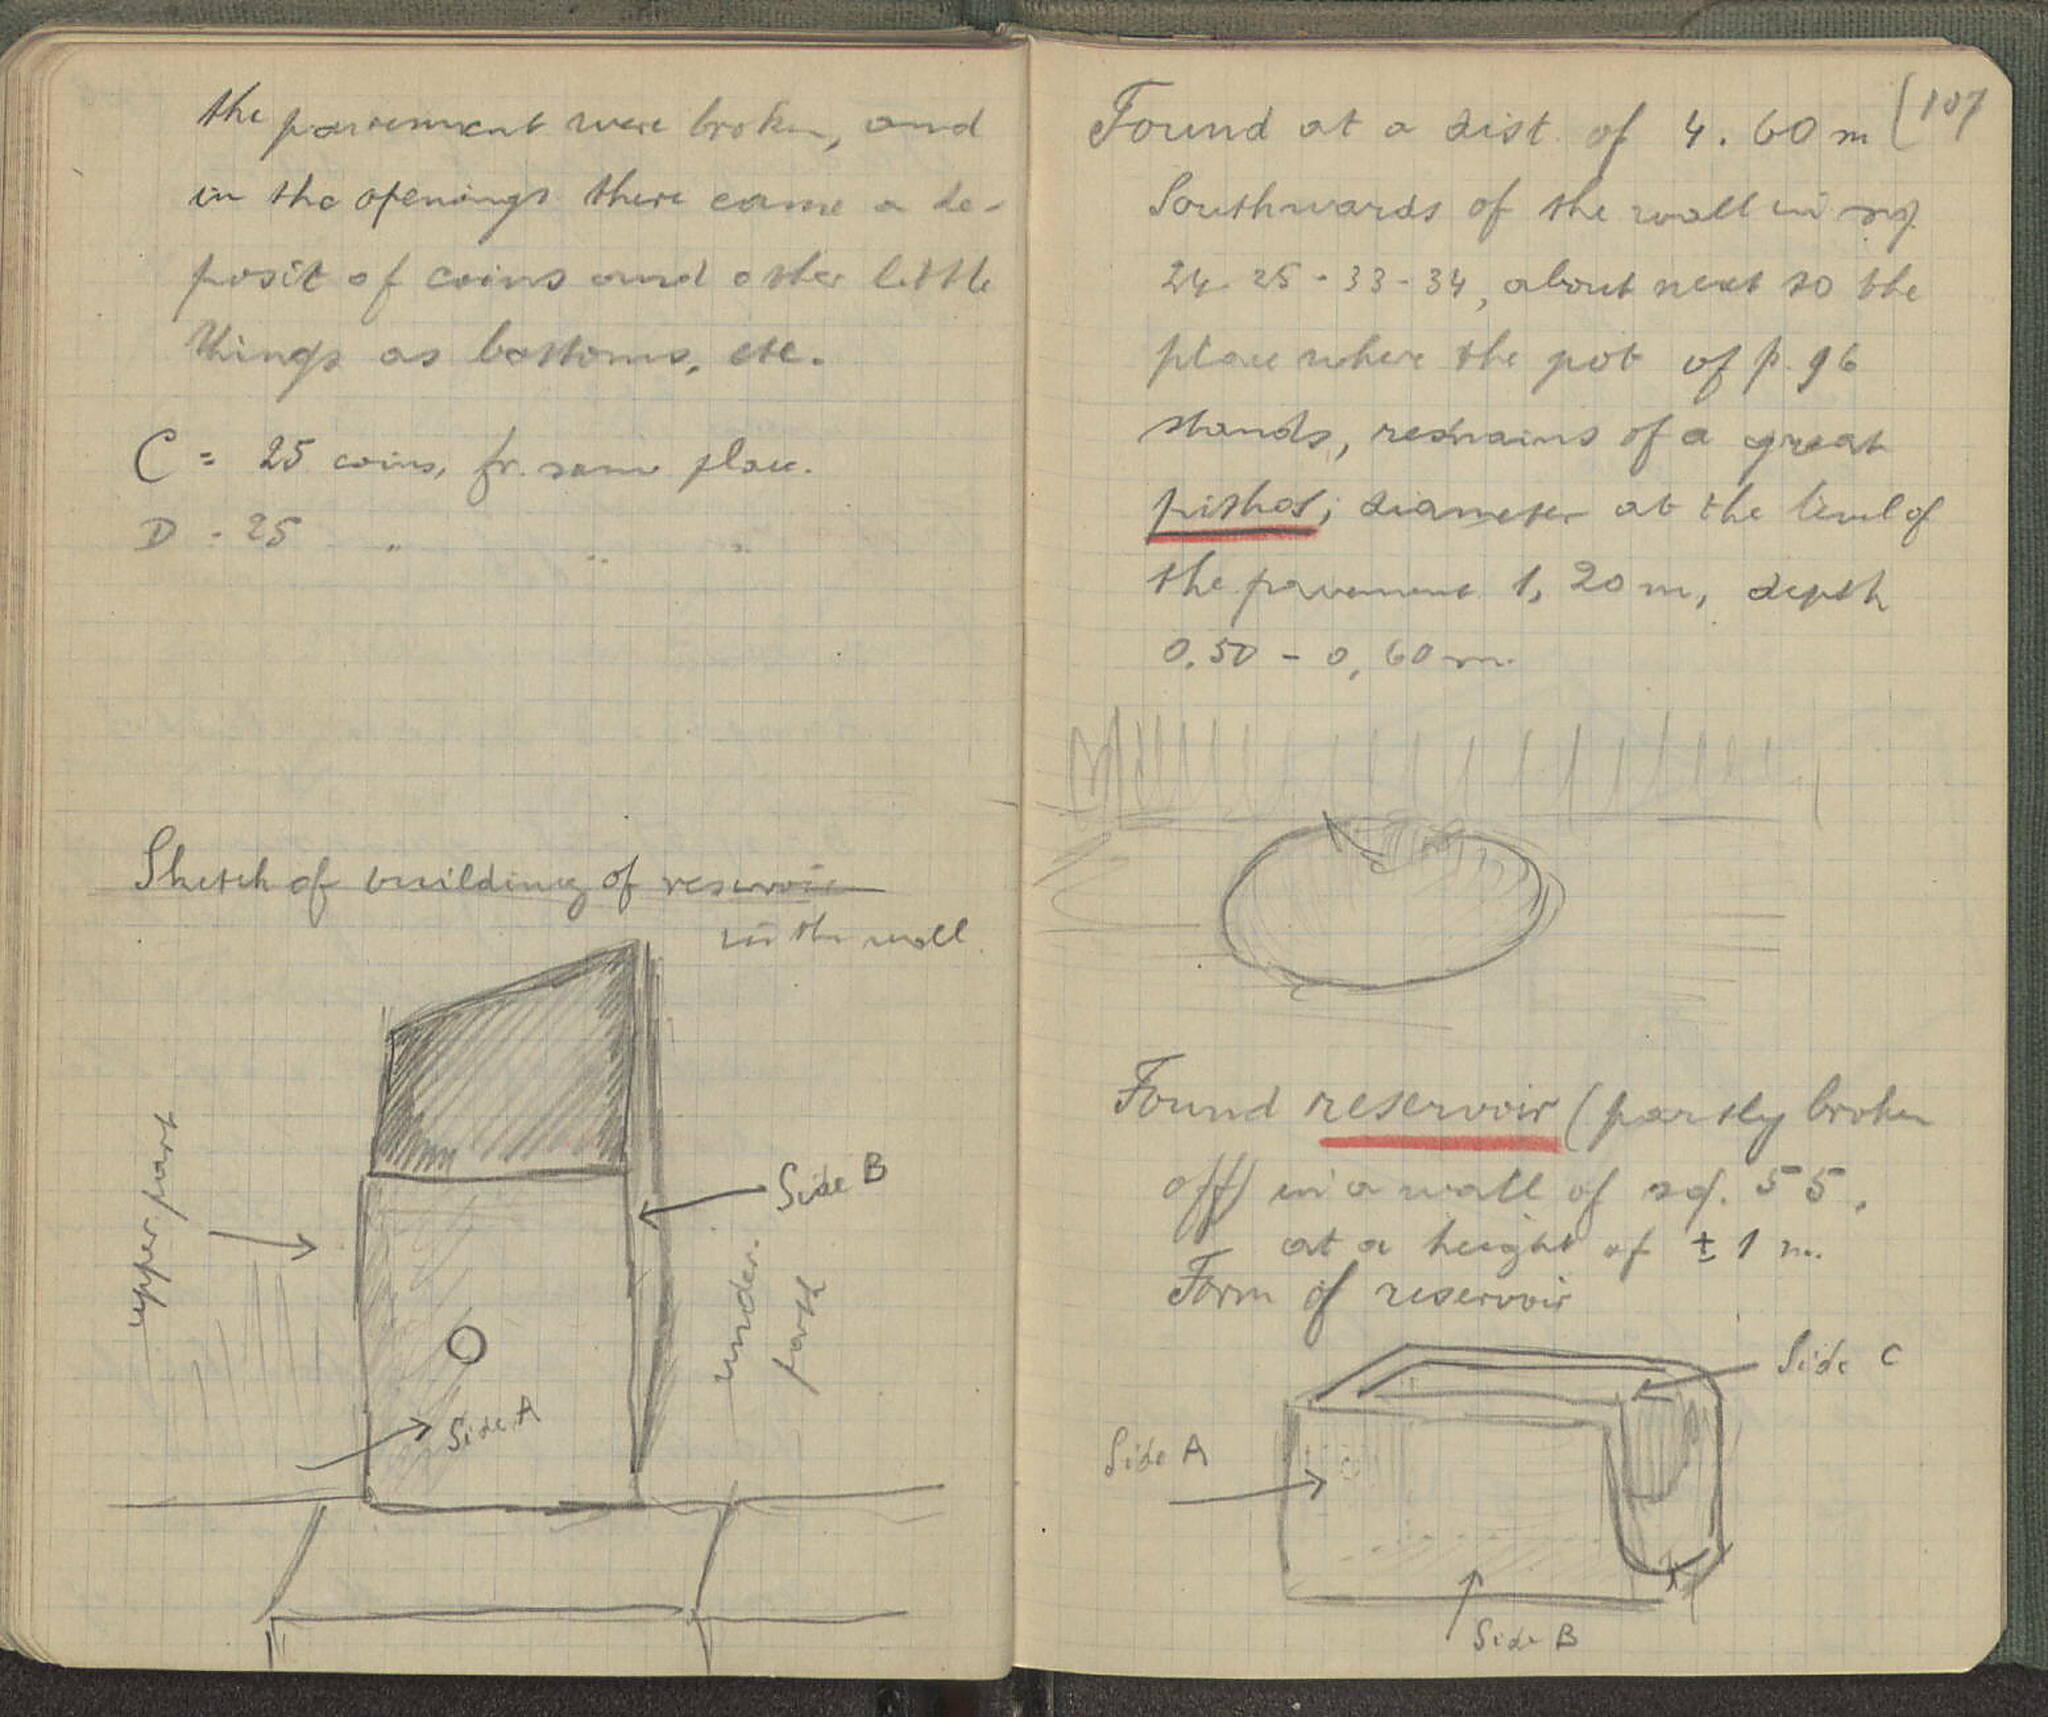 the pavement were broken, and
in the openings there came a de-
posit of coins and other little
things as bottoms, etc.
C = 25 coins, fr. same place.
D = 25 " " "
Sketch of building of reservoir
in the wall
upper part
Side B
under
part
Side A
107
Found at a dist. of 4.60 m
Southwards of the wall in sq.
24-25-33-34, about next to the
place where the pot of p. 96
stands, remains of a great
pithos; diameter at the level of
the pavement 1,20 m, depth
0.50 - 0,60 m.
Found reservoir (partly broken
off) in a wall of sq. 55,
at a height of ± 1 m.
Form of reservoir
Side C
Side A
Side B